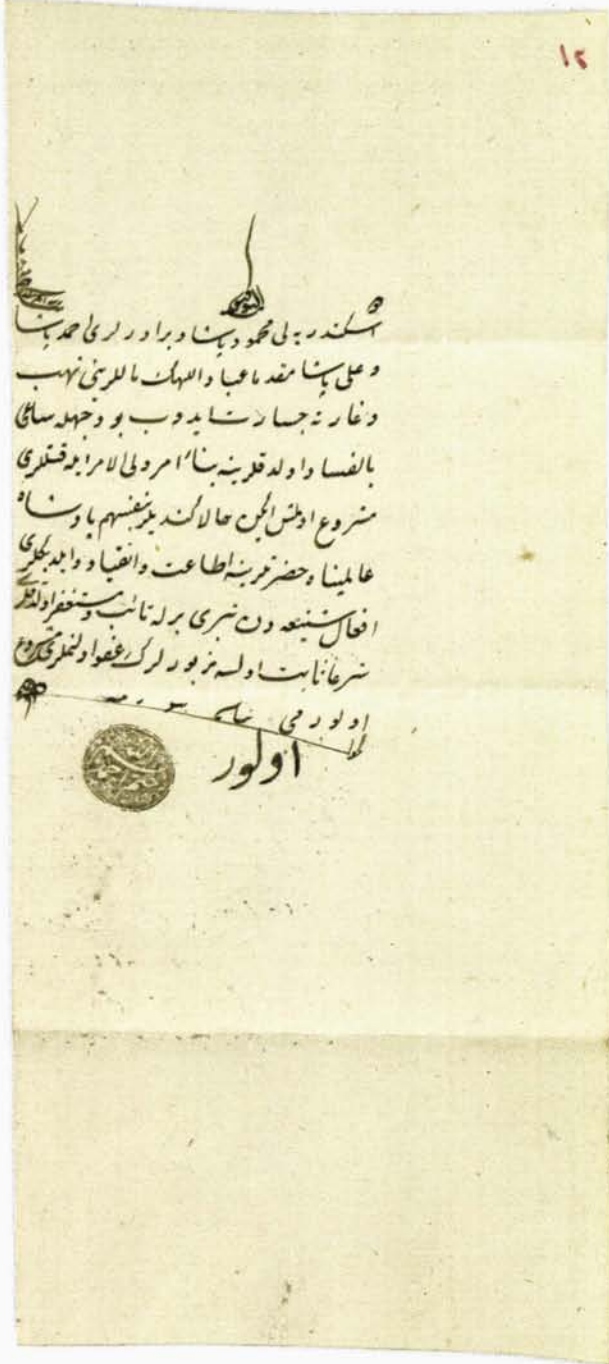 ١٢
اسكندريه لى محمود پاشا و برادرلرى احمد پاشا
و على پاشا مقدما عباد اللهك ماللرينى نهب
و غارته جسارت ايدوب بو وجهله ساعى
بالفساد اولدقلرينه بناءً امر ولى الامر ايله قتللرى
مشروع اولمش ايكن حالا كنديلر بنفسهم پادشاه
عالمپناه حضرتلرينه اطاعت و انقياد و ايلدكلرى
افعال شنيعه دن تبرى برله تائب و مستغفر اولدقلرى
شرعا ثابت اولسه مزبورلرك عفو اولنملرى مشروع
اولورمى
الجواب
اولور